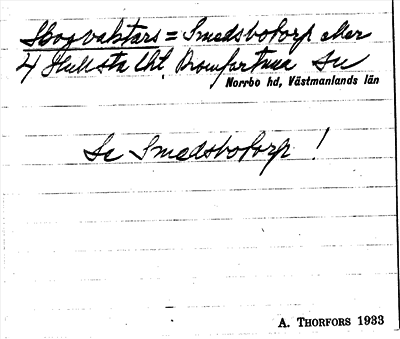 Skogvaktars = Smedsbotorp eller
4 Hulsta Uht. Romfartuna Sn
Norrbo hd, Västmanlands län
Se Smedsbotorp !
A. THORFORS 1933